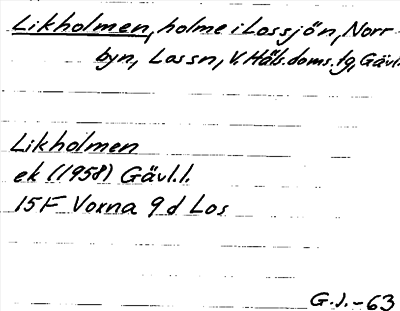 Likholmen, holme i Lossjön, Norr
byn, Lossn, V. Häls. doms. tg, Gävl.
Likholmen
ek (1958) Gävl.l.
15F Voxna 9 d Los
G.J.-63